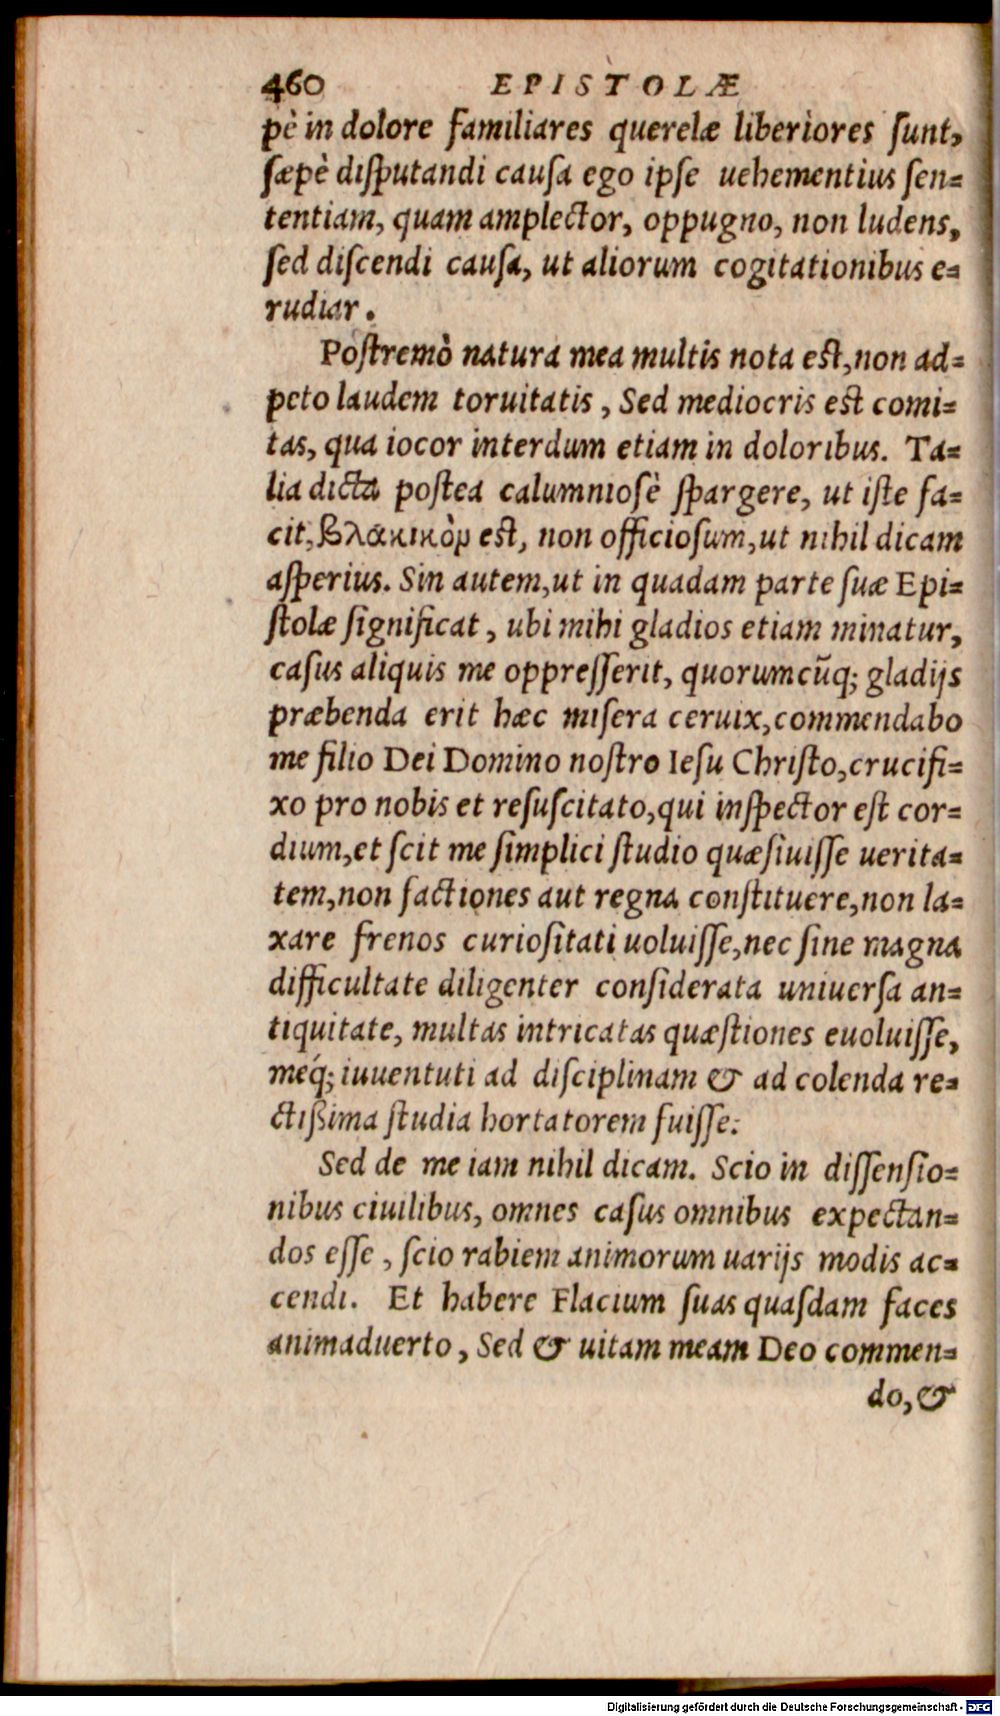 460 EPISTOLÆ
pè in dolore familiares querelæ liberiores sunt,
sæpè disputandi causa ego ipse uehementius sen=
tentiam, quam amplector, oppugno, non ludens,
sed discendi causa, ut aliorum cogitationibus e=
rudiar.
Postremò natura mea multis nota est, non ad=
peto laudem toruitatis, Sed mediocris est comi=
tas, qua iocor interdum etiam in doloribus. Ta=
lia dicta postea calumniosè spargere, ut iste fa=
cit, βλακικὸν est, non officiosum, ut nihil dicam
asperius. Sin autem, ut in quadam parte suæ Epi=
stolæ significat, ubi mihi gladios etiam minatur,
casus aliquis me oppresserit, quorumcũq; gladijs
præbenda erit hæc misera ceruix, commendabo
me filio Dei Domino nostro Iesu Christo, crucifi=
xo pro nobis et resuscitato, qui inspector est cor=
dium, et scit me simplici studio quæsiuisse uerita=
tem, non factiones aut regna constituere, non la=
xare frenos curiositati uoluisse, nec sine magna
difficultate diligenter considerata uniuersa an=
tiquitate, multas intricatas quæstiones euoluisse,
meq́; iuuentuti ad disciplinam & ad colenda re=
ctißima studia hortatorem fuisse.
Sed de me iam nihil dicam. Scio in dissensio=
nibus ciuilibus, omnes casus omnibus expectan=
dos esse, scio rabiem animorum uarijs modis ac=
cendi. Et habere Flacium suas quasdam faces
animaduerto, Sed & uitam meam Deo commen=
do, &
Digitalisierung gefördert durch die Deutsche Forschungsgemeinschaft - DFG